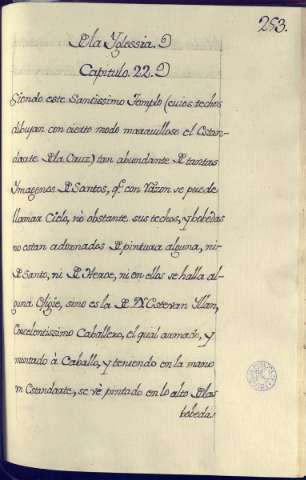 253.
De la Yglessia.
Capitulo. 22.
Siendo este Santissimo Templo (cuios techos
dibujan con cierto modo maravilloso el Estan-
darte De la Cruz) tan abundante De tantas
Imagenes De Santos, q.e con razon se puede
llamar Cielo, nò obstante sus techos, y bobedas
no estan adornados De pintura alguna, ni
De Santo, ni De Heroe, ni en ellos se halla al-
guna Efigie, sino es la De Dn Estevan Yllan,
Excelentissimo Caballero, el qual armado, y
montado à Caballo, y teniendo en la mano
un Estandarte, se vè pintado en lo alto De las
bobedas